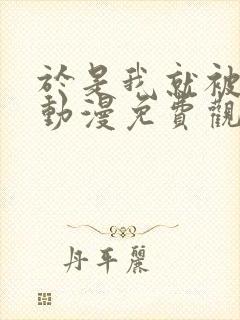 於是我就被
動漫免費觀
丹平麗